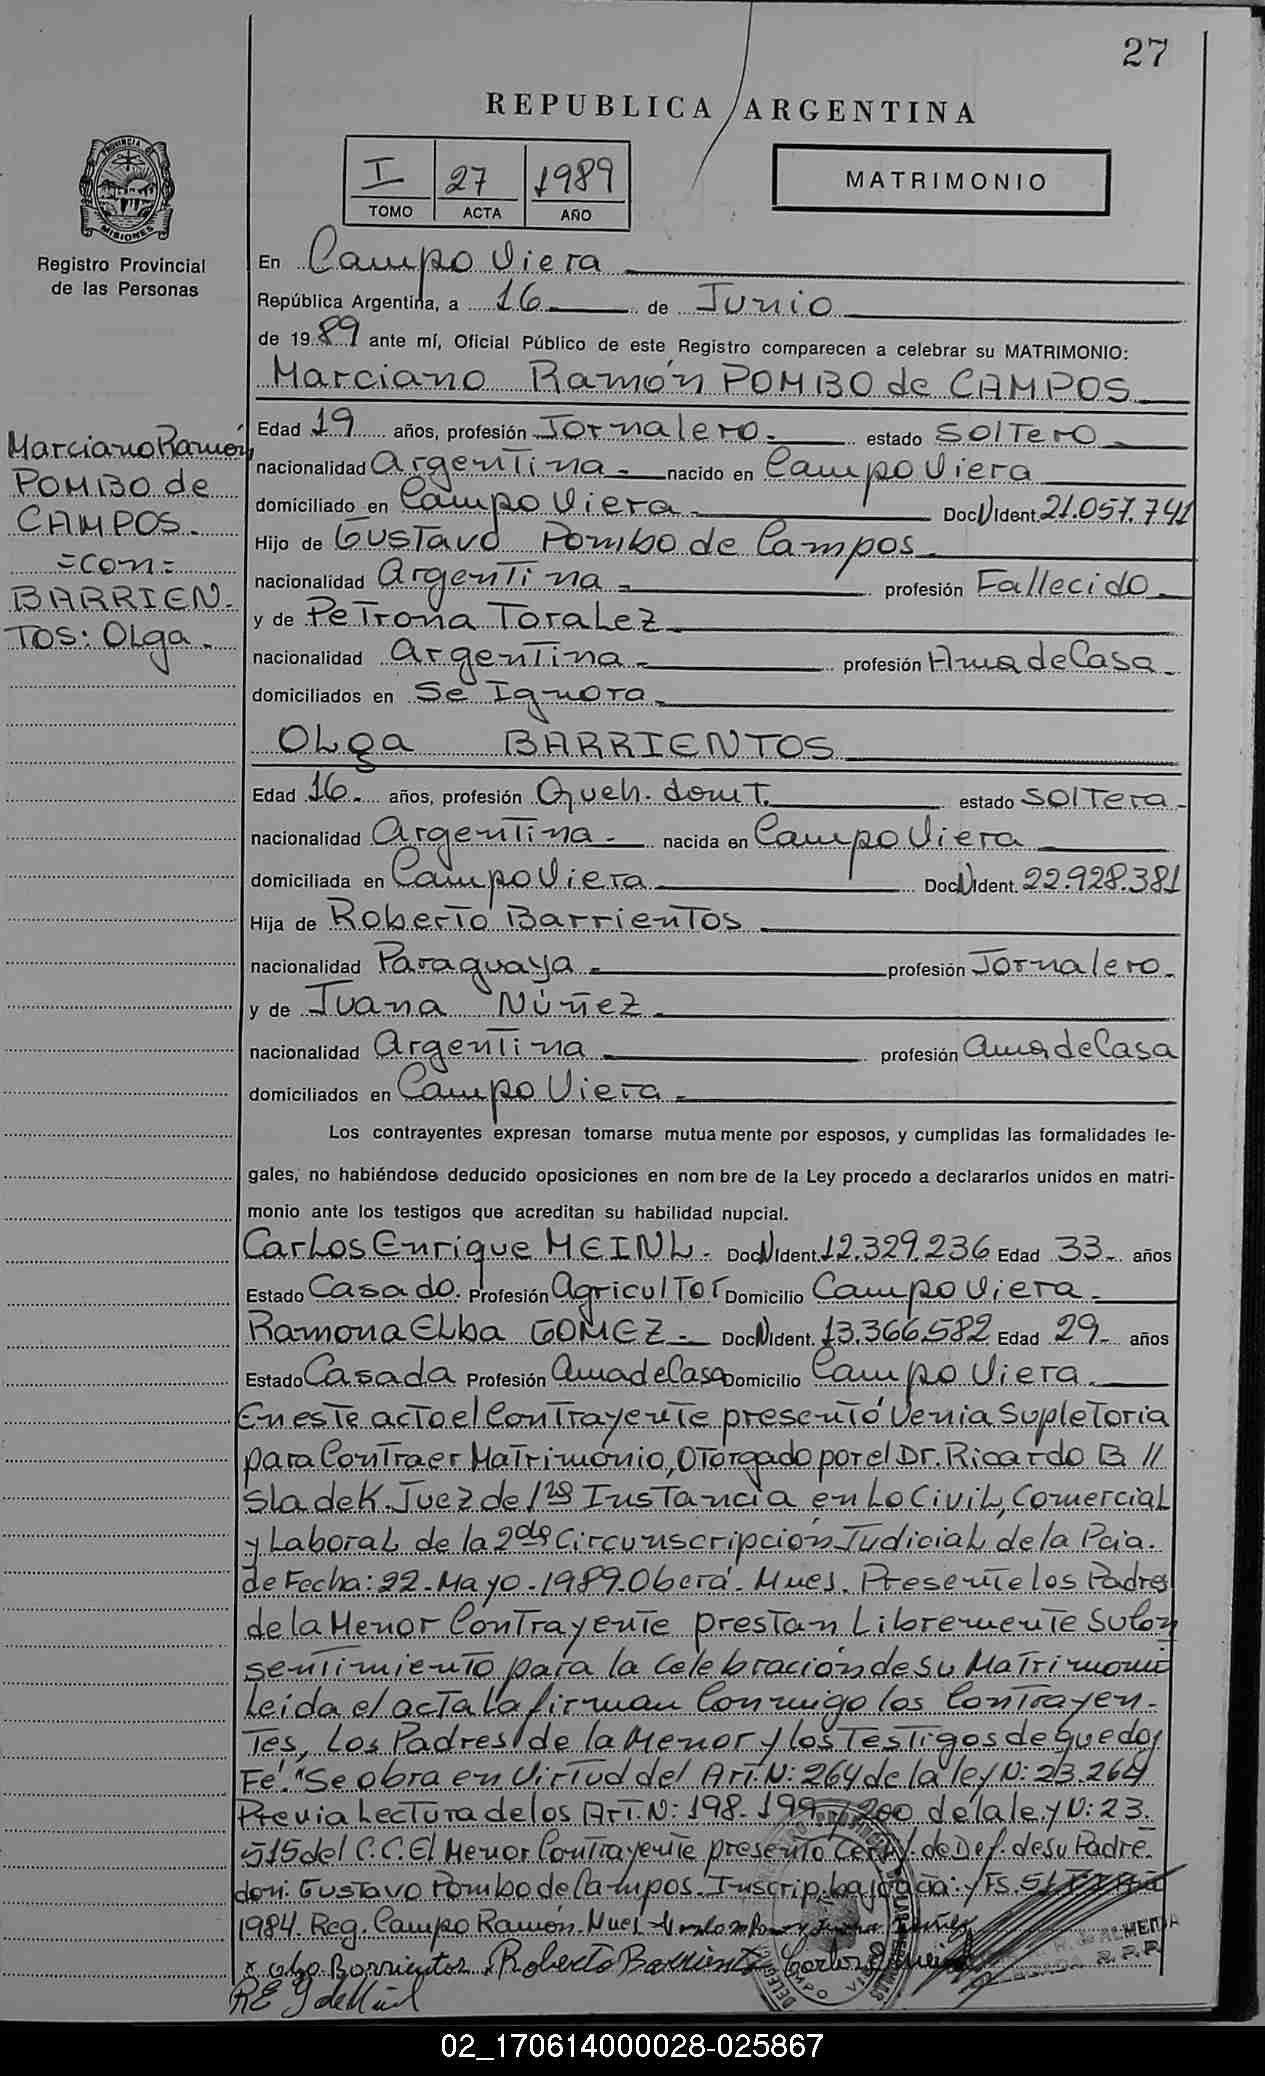 27
REPUBLICA ARGENTINA
I 27 1989
TOMO ACTA AÑO
MATRIMONIO
PROVINCIA DE
MISIONES
Registro Provincial
de las Personas
En Campo Viera
República Argentina, a 16 de Junio
de 1989 ante mí, Oficial Público de este Registro comparecen a celebrar su MATRIMONIO:
Marciano Ramón POMBO de CAMPOS
Marciano Ramón
POMBO de
CAMPOS.
=con=
BARRIEN.
TOS: OLga.
Edad 19 años, profesión Jornalero.- estado SOLTERO
nacionalidad Argentina.- nacido en Campo Viera
domiciliado en Campo Viera.- Doc N Ident. 21.057.741
Hijo de Gustavo Pombo de Campos.
nacionalidad Argentina.- profesión Fallecido
y de Petrona Toralez
nacionalidad Argentina.- profesión Ama de Casa.-
domiciliados en Se Ignora.
OLga BARRIENTOS
Edad 16.- años, profesión Queh. domt. estado SOLTERA.-
nacionalidad Argentina.- nacida en Campo Viera
domiciliada en Campo Viera Doc N Ident. 22.928.381
Hija de Roberto Barrientos
nacionalidad Paraguaya.- profesión Jornalero.
y de Juana Núñez
nacionalidad Argentina profesión Ama de Casa
domiciliados en Campo Viera.-
Los contrayentes expresan tomarse mutuamente por esposos, y cumplidas las formalidades le-
gales, no habiéndose deducido oposiciones en nombre de la Ley procedo a declararlos unidos en matri-
monio ante los testigos que acreditan su habilidad nupcial.
Carlos Enrique MEINL. Doc N Ident. 12.329.236 Edad 33.- años
Estado Casado. Profesión Agricultor Domicilio Campo Viera.-
Ramona Elba GOMEZ.- Doc N Ident. 13.366.582 Edad 29.- años
Estado Casada Profesión Ama de Casa Domicilio Campo Viera.
En este acto el Contrayente presentó Venia Supletoria
para Contraer Matrimonio, Otorgado por el Dr. Ricardo B //
Sladek. Juez de 1ra Instancia en Lo Civil, Comercial
y Laboral de la 2da Circunscripción Judicial de la Pcia.
de Fecha: 22-Mayo-1989. Oberá- Mnes. Presente los Padres
de la Menor Contrayente prestan Libremente su Con
sentimiento para la Celebración de su Matrimonio
Leida el acta la firman Conmigo los Contrayen-
tes, Los Padres de la Menor y los Testigos de que doy
Fé. "Se obra en Virtud del Art. N: 264 de la ley N: 23.264
Previa Lectura de los Art. N: 198. 199 y 200 de la ley N: 23.
515 del C.C. El Menor Contrayente presento Certif. de Def. de su Padre
don: Gustavo Pombo de Campos. Inscrip. bajo acta: Fs. 51
1984. Reg. Campo Ramón. Mnes
Barrientos Roberto Barrientos Carlos E Meinl
02_170614000028-025867